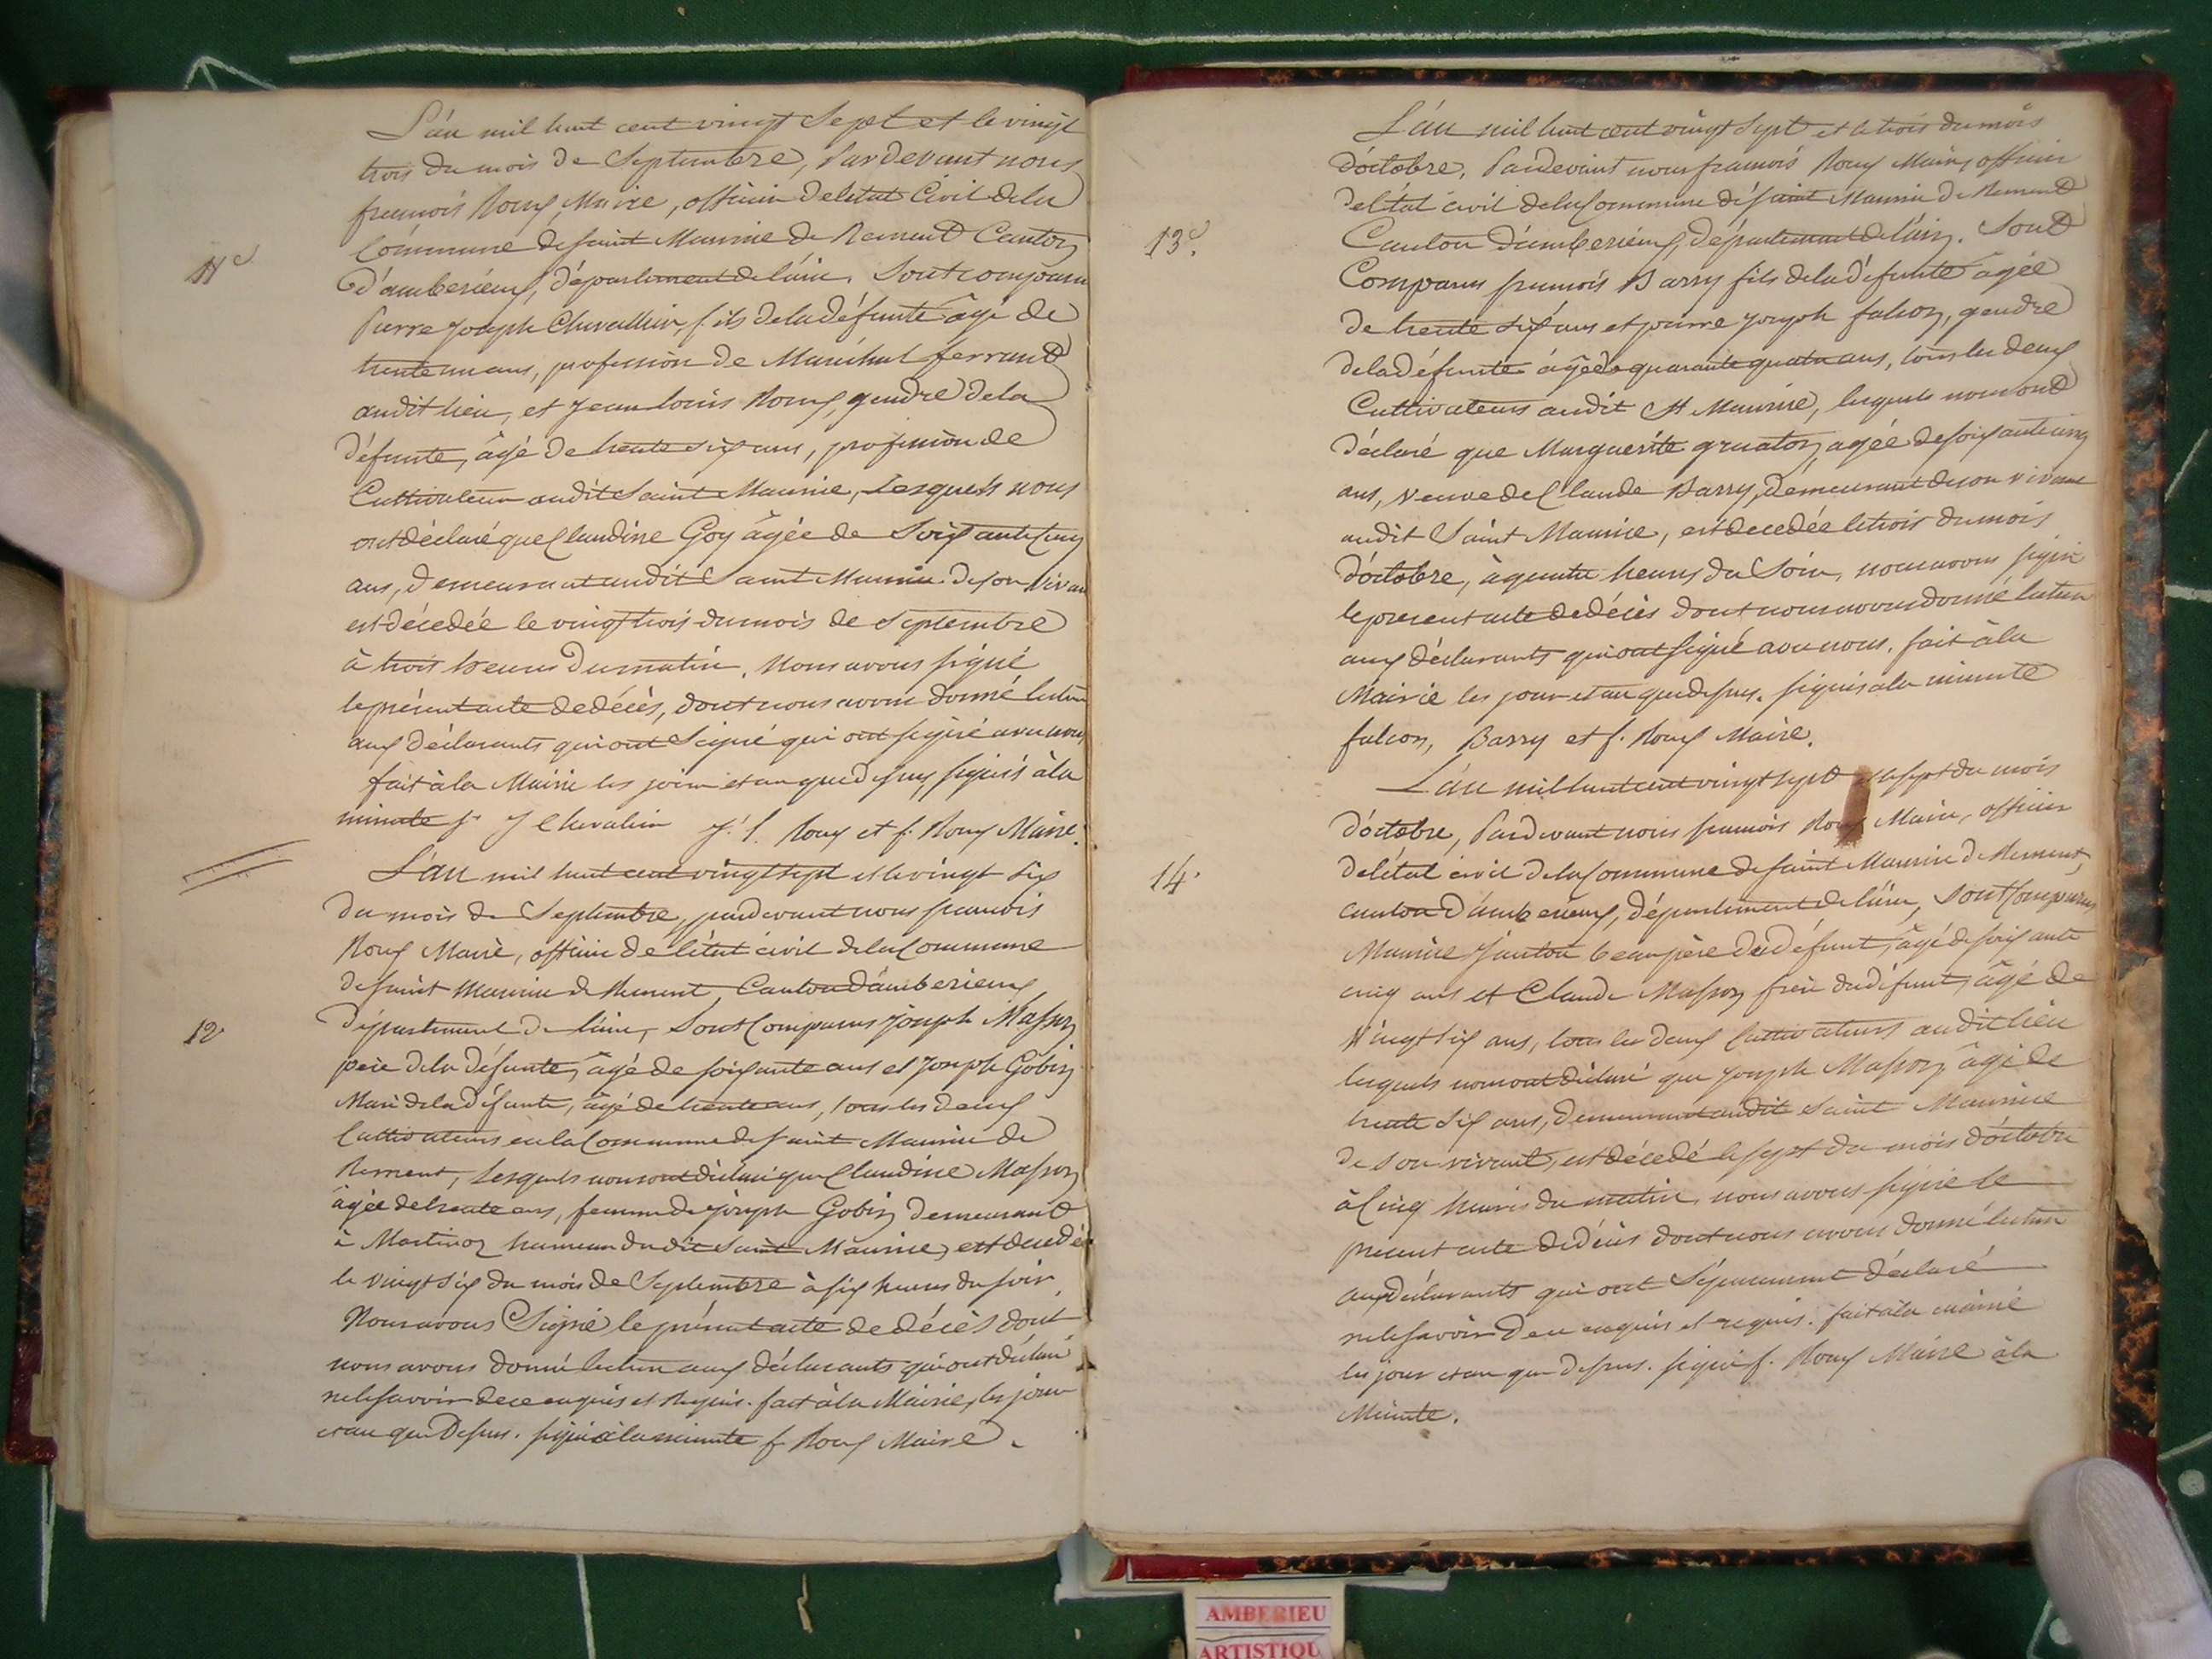 L'an mil huit cent vingt Sept et le vingt
trois du mois de Septembre, Pardevant nous
françois Roux Maire, officier de létat Civil de la
Commune de Saint Maurice de Rement Canton
d'amberieux, département de l'ain. Sont comparu
Pierre joseph Chevallier, fils de la défunte âgé de
trente un ans, profession de Maréchal ferrant
audit lieu, et jean louis Roux, gendre de la
défunte, âgé de trente six ans, profession de
Cultivateur audit Saint Maurice, Lesquels nous
ont déclaré que Claudine Goy âgée de Soixante Cinq
ans, demeurant audit Saint Maurice de son vivan
est décedée le vingt trois du mois de Septembre
à trois heures du matin. Nous avons signé
le présent acte de décès, dont nous avons donné lecture
aux déclarants qui ont Signé qui ont signé avec nous
fait à la Mairie les jour et an que dessus signés à la
minute Chevalier j. l. Roux et f. Roux Maire.
11e
L'an mil huit cent vingt sept et le vingt six
du mois de Septembre, pardevant nous francois
Roux Maire, officier de létat civil de la Commune
de Saint Maurice de Rement, Canton d'amberieux
département de l'ain, Sont Comparus joseph Masson
père de la défunte, âgé de soixante ans et joseph Gobin
Mari de la défunte, âgé de trente ans, tous les deux
Cultivateurs en la Commune de Saint Maurice de
Rement, Lesquels nous ont déclaré que Claudine Masson
âgée de trente ans, femme de joseph Gobin demeurant
à Martinaz hameau dudit Saint Maurice, est decedée
le vingt six du mois de Septembre à six heures du soir,
Nous avons Signé le présent acte de décès dont
nous avons donné lecture aux déclarants qui ont déclaré
ne le savoir de ce enquis et Requis. fait à la Mairie, les jour
et an que Dessus. signé à la minute f. Roux Maire.
12
L'an mil huit cent vingt Sept et le trois du mois
d'octobre, Pardevant nous francois Roux Maire, officier
de l'état civil de la Commune de saint Maurice de Rement
Canton d'amberieux, département de l'ain. Sont
Comparus francois Barry fils de la défunte âgée
de trente six ans et pierre joseph falcoz, gendre
de la défunte âgé de quarante quatre ans, tous les deux
Cultivateurs audit St Maurice, lesquels nous ont
déclaré que Marguerite gruatoz, agée de soixante cinq
ans, veuve de Claude Barry, demeurant de son vivant
audit Saint Maurice, est decedée le trois du mois
d'octobre, à quatre heures du Soir, nous avons signé
le present acte de décès dont nous avons donné lecture
aux déclarants qui ont signé avec nous. fait à la
Mairie les jour et an que dessus. signés à la minute
falcoz, Barry et f. Roux Maire.
13e
L'an mil huit cent vingt sept et le sept du mois
d'octobre, Pardevant nous francois Roux Maire, officier
de létat civil de la Commune de saint Maurice de Rement,
canton d'amberieux, département de l'ain, Sont Comparus
Maurice Janton beau père du défunt, âgé de soixante
cinq ans et Claude Masson frère du défunt, âgé de
Vingt six ans, tous les deux Cultivateurs audit lieu
lesquels nous ont déclaré que joseph Masson, âgé de
trente six ans, demeurant audit Saint Maurice
de son vivant, est décedé le sept du mois d'octobre
à Cinq heures du matin, nous avons signé le
present acte de décès dont nous avons donné lecture
aux déclarants qui ont Séparement déclaré
ne le savoir d'eux enquis et requis. fait à la mairie
les jour et an que dessus. signé f. Roux Maire à la
Minute.
14.
AMBERIEU
ARTISTIQU